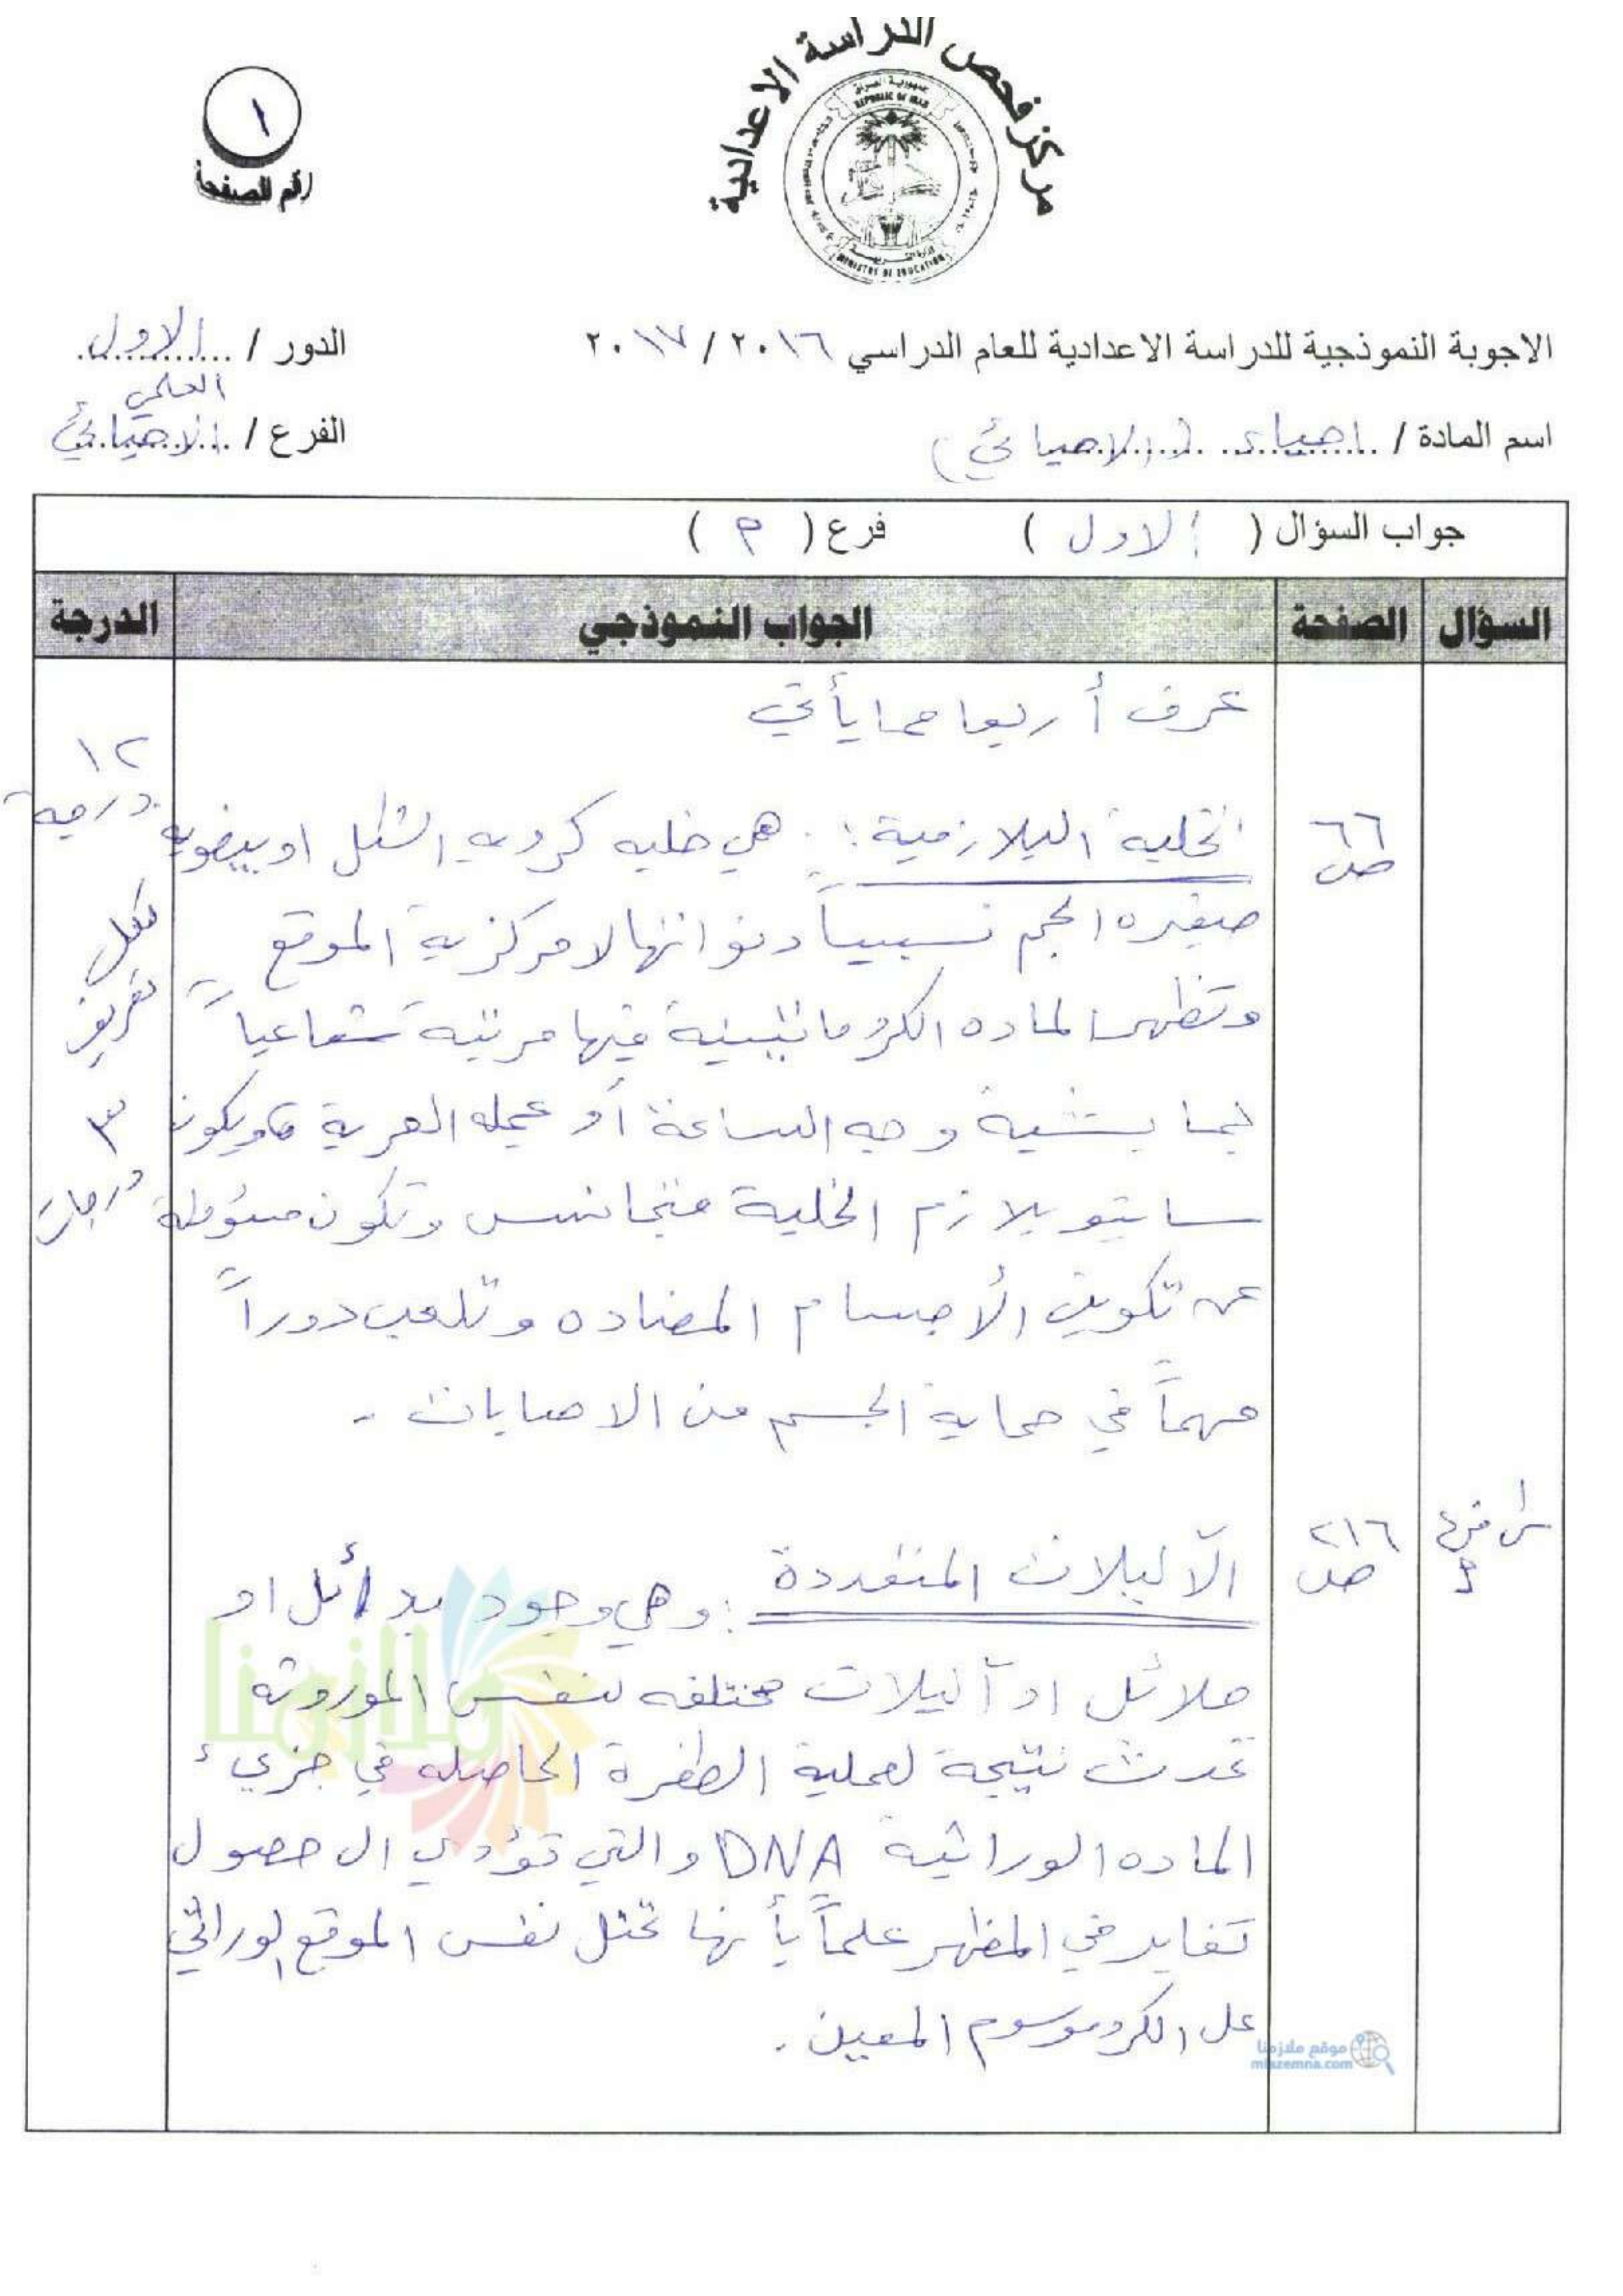 مركز فحص الدراسة الاعدادية
جمهورية العراق
REPUBLIC OF IRAQ
MINISTRY OF EDUCATION
١
رقم الصفحة
الاجوبة النموذجية للدراسة الاعدادية للعام الدراسي ٢٠١٦ / ٢٠١٧
الدور / الاول
اسم المادة / احياء (الاحيائي)
الفرع / العلمي الاحيائي
جواب السؤال ( الاول ) فرع ( م )
السؤال الصفحة الجواب النموذجي الدرجة
عرف أربعا مما يأتي
١٢ درجة
ص ٦٦
الخلية البلازمية : هي خليه كرويه الشكل او بيضويه
صغيره الحجم نسبياً ونواتها لامركزية الموقع
وتظهر الماده الكروماتينية فيها مرتبه شعاعياً
بما يشبه وجه الساعة أو عجله العربة ويكون
سايتوبلازم الخلية متجانس وتكون مسؤوله
عن تكوين الأجسام المضاده وتلعب دوراً
مهماً في حماية الجسم من الاصابات .
لكل تعريف ٣ درجات
س١ فرع
ص ٢١٦
الآليلات المتعددة : وهي وجود بدائل او
حلائل او آليلات مختلفه لنفس الموروثه
تحدث نتيجة لعملية الطفرة الحاصله في جزيء
الماده الوراثية DNA والتي تؤدي الى حصول
تغاير في المظهر علماً بأنها تحتل نفس الموقع الوراثي
على الكروموسوم المعين .
ملازمنا
موقع ملازمنا
mlazemna.com